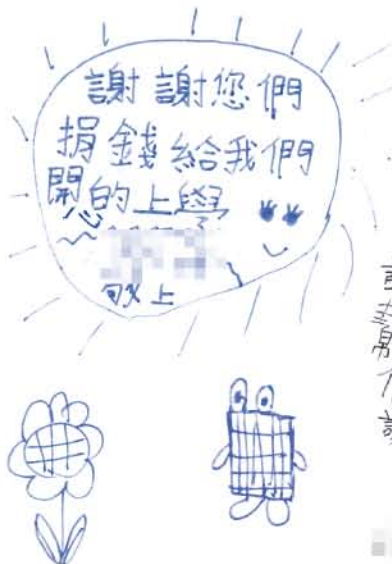 謝謝您們
捐錢給我們
開心的上學
敬上